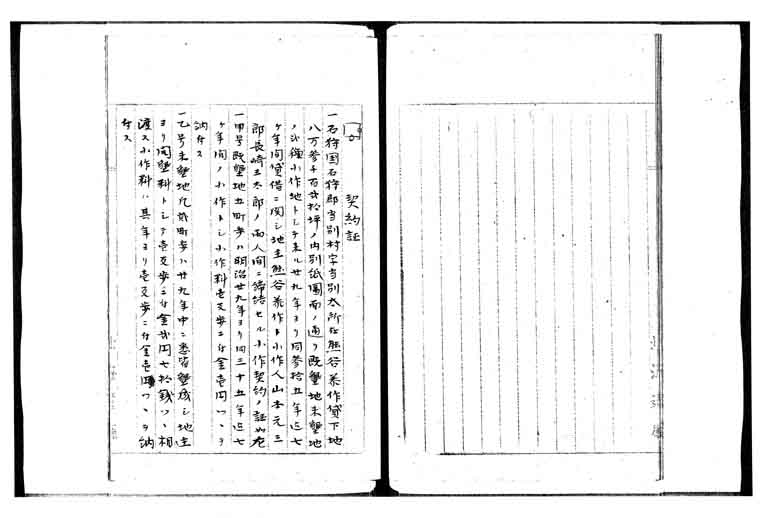 契約証
一石狩国石狩郡当別村字当別太所在熊谷兼作貸下地
八万参千百弐拾坪ノ内別紙図面ノ通リ既墾地未墾地
ノ弐種小作地トシテ来ル廿九年ヨリ同参拾五年迄七
ケ年間貸借ニ関シ地主熊谷兼作ト小作人山本元三
郎長崎三太郎ノ両人間ニ締結セル小作契約ノ証如左
一甲号既墾地五町歩ハ明治廿九年ヨリ同三十五年迄七
ケ年間ノ小作トシ小作料壱反歩ニ付金壱円ツヽヲ
納付ス
一乙号未墾地九弐町歩ハ廿九年中ニ悉皆墾成シ地主
ヨリ開墾料トシテ壱反歩ニ付金弐円七拾銭ツヽ相
渡ス小作料ハ其年ヨリ壱反歩ニ付金壱円ツヽヲ納
付ス